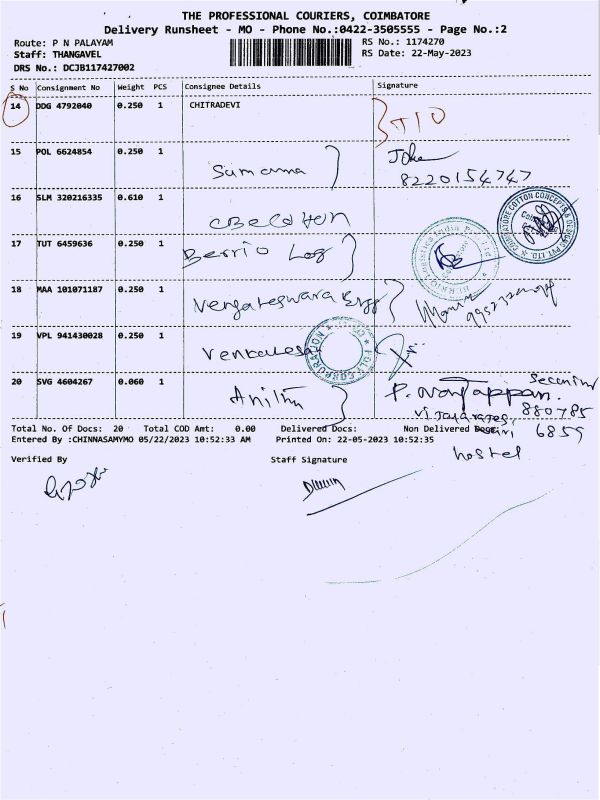 THE PROFESSIONAL COURIERS, COIMBATORE
Delivery Runsheet - MO - Phone No.:0422-3505555 - Page No.:2
Route: P N PALAYAM RS No.: 1174270
Staff: THANGAVEL RS Date: 22-May-2023
DRS No.: DCJB117427002
S No Consignment No Weight PCS Consignee Details Signature
14 DDG 4792040 0.250 1 CHITRADEVI
15 POL 6624854 0.250 1
8220154747
16 SLM 320216335 0.610 1
17 TUT 6459636 0.250 1 Berrio Log
18 MAA 101071187 0.250 1
19 VPL 941430028 0.250 1
20 SVG 4604267 0.060 1
880785
Total No. Of Docs: 20 Total COD Amt: 0.00 Delivered Docs: Non Delivered Docs:
6859
Entered By :CHINNASAMYMO 05/22/2023 10:52:33 AM Printed On: 22-05-2023 10:52:35
hostel
Verified By Staff Signature